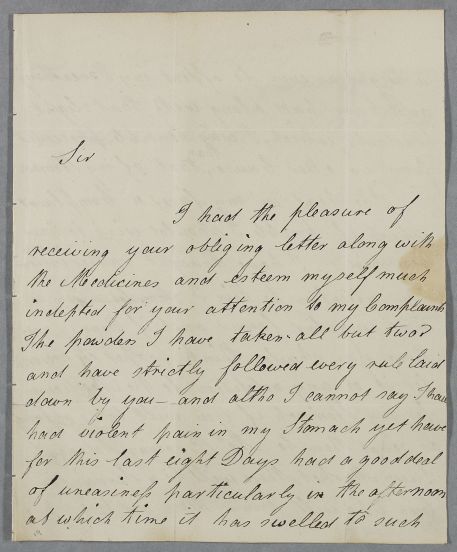 Sir
I had the pleasure of
receiving your obliging letter along with
the Medicines and esteem myself much
indepted for your attention to my Complaint
The powders I have taken all but two
and have strictly followed every rule laid
down by you – and altho I cannot say I have
had violent pain in my Stomach yet have
for this last eight Days had a good deal
of uneasiness particularly in the afternoon
at which time it has swelled to such